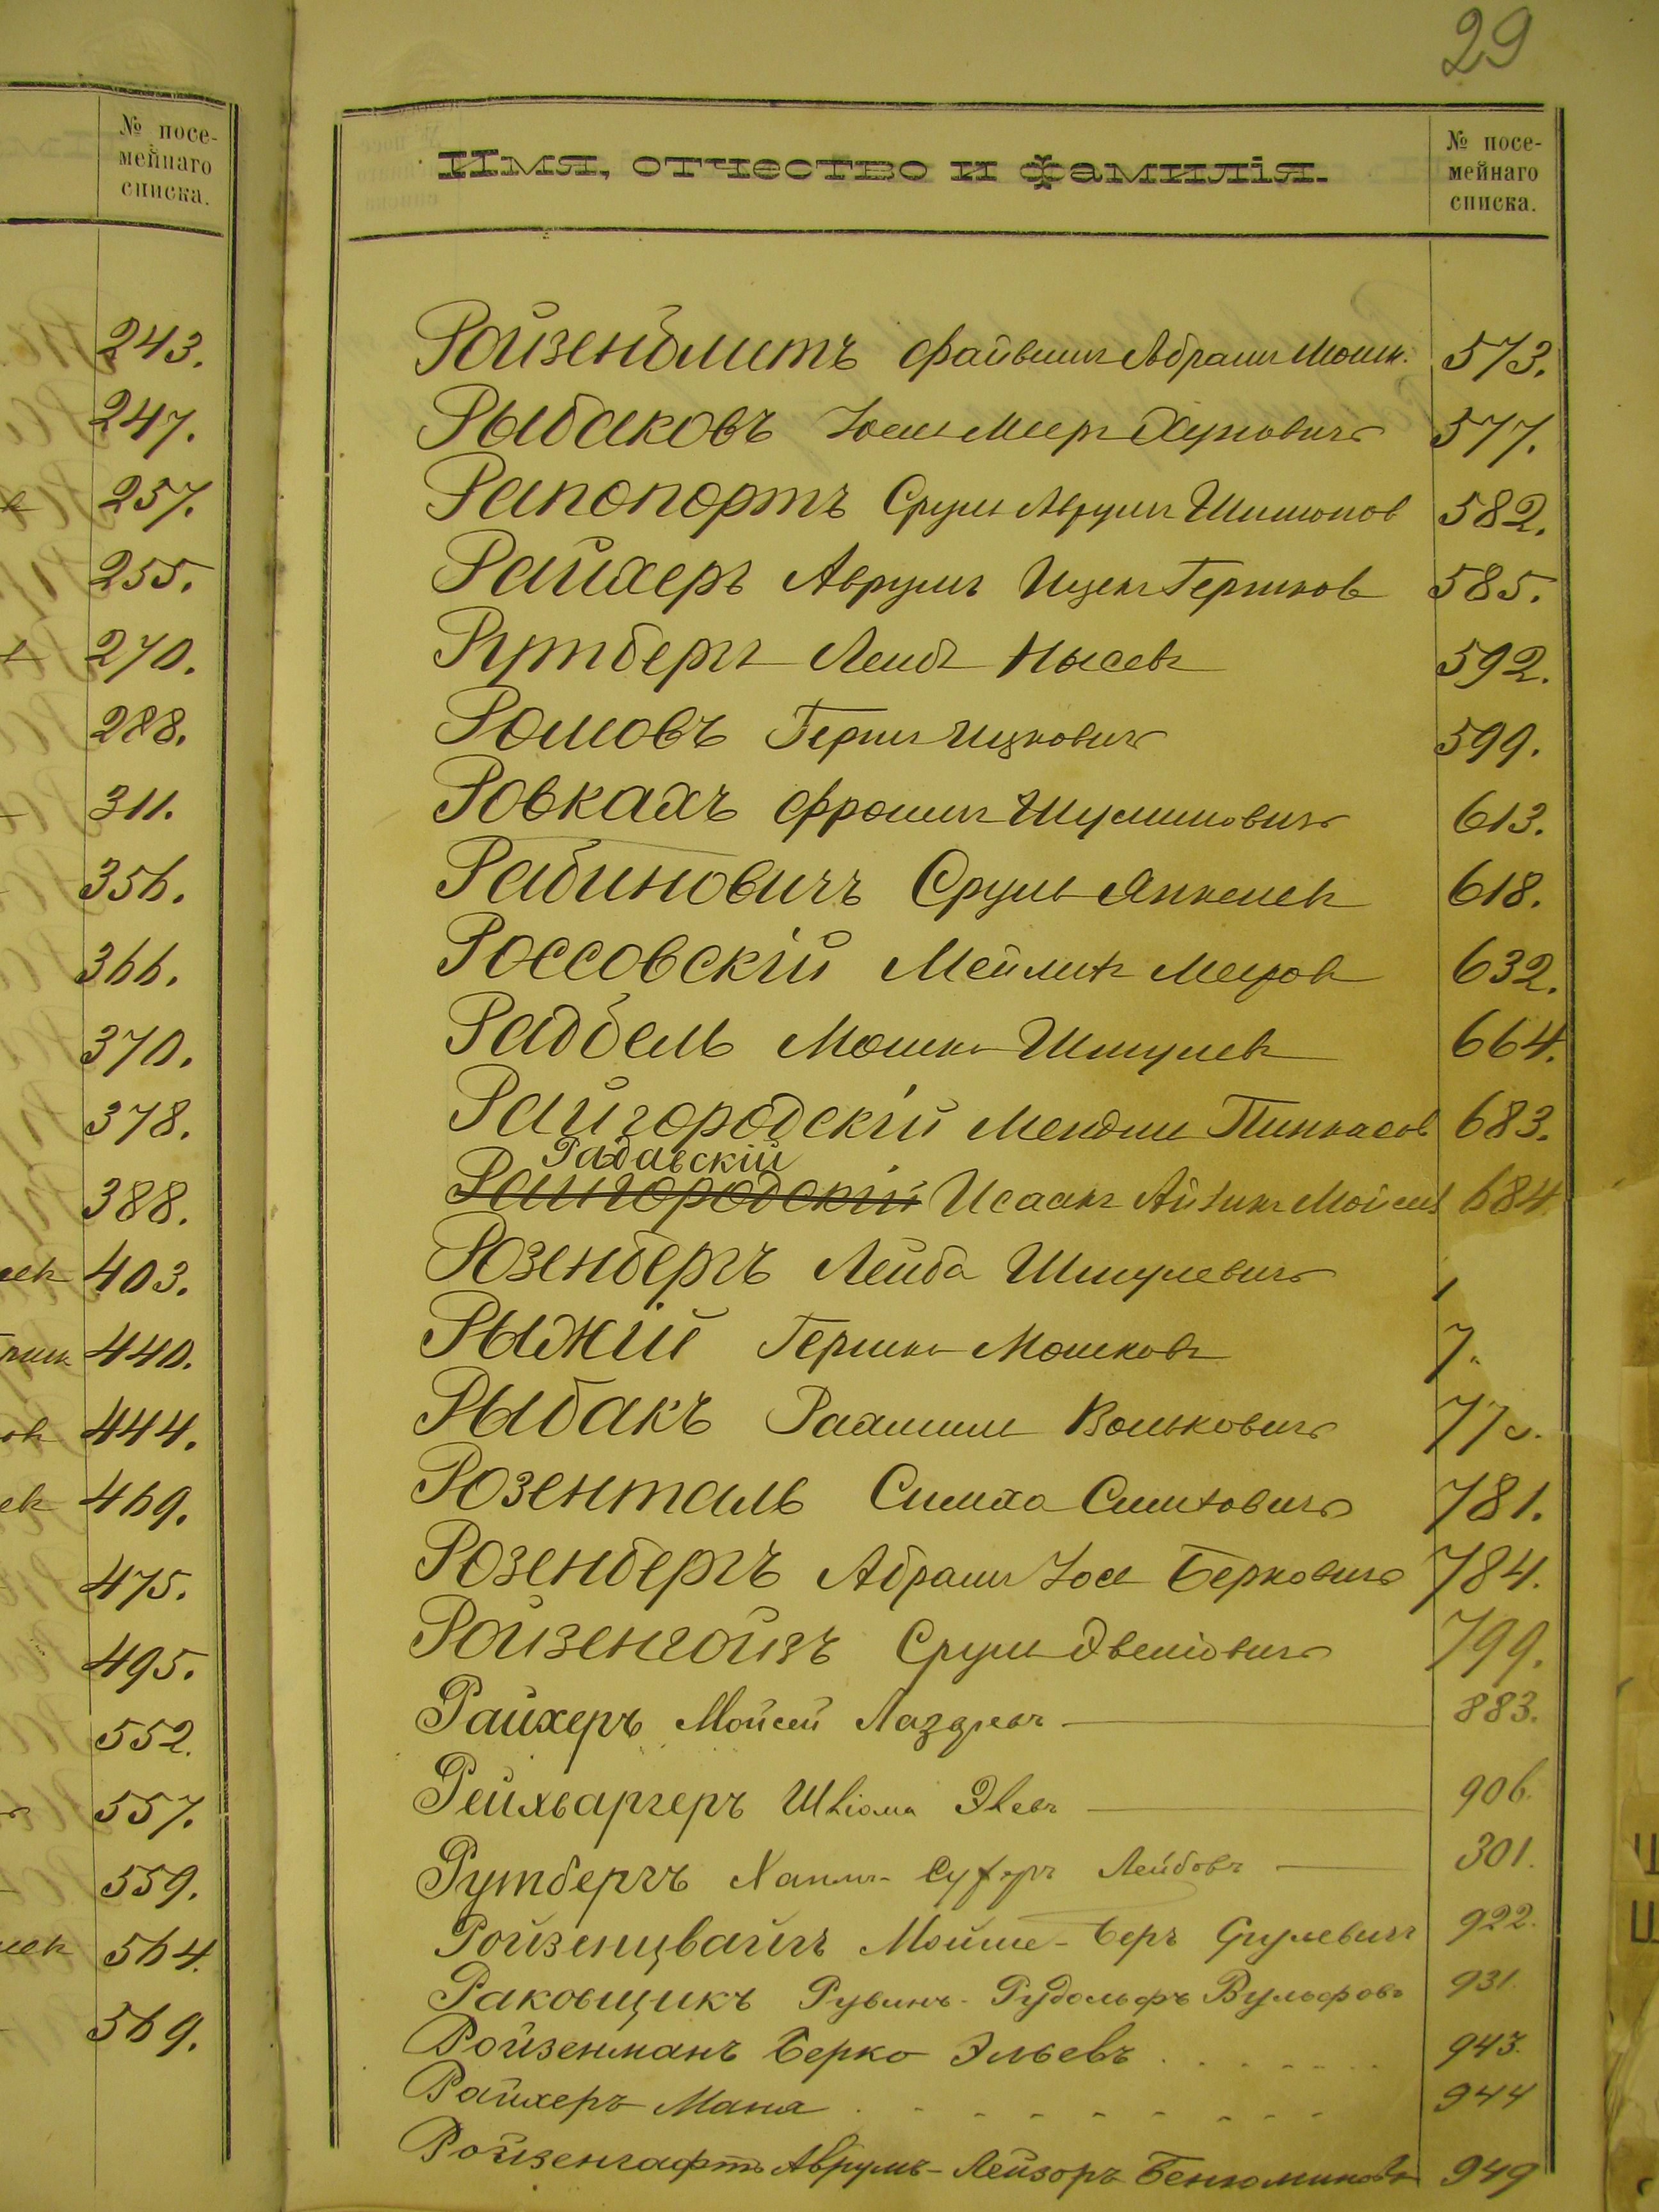 29
№ посе-
мейнаго
списка.
243.
247.
257.
255.
270.
288.
311.
356.
366.
370.
378.
388.
403.
440.
444.
469.
475.
495.
552.
557.
559.
564.
569.
Имя, отчество и фамилія.
№ посе-
мейнаго
списка.
Ройзенблитъ Файвишъ Абрамъ Мошк. 573.
Рыбаковъ Іось Меер 577.
Рапопортъ Сруль Аврумъ Шимонов 582.
Райхеръ Аврумъ Ицекъ Гершков 585.
Рутбергъ Лейб Нысевъ 592.
Ромовъ Гершъ Ицковичъ 599.
Ровкахъ Фроимъ Шулимовичъ 613.
Рабиновичъ Сруль Янкелев 618.
Россовскій Мейлихъ Мееров 632.
Радбель Мошко Шмулев 664.
Райгородскій Мендель Пинкасов 683.
Радавскій
Райгородскій Исаакъ Айзикъ Мойсев 684
Розенбергъ Лейба Шмулевичъ
Рыжій Гершко Мошковъ 7.
Рыбакъ Волькович 77
Розенталь Симха Симховичъ 781.
Розенбергъ Абрамъ Іось Берковичъ 784.
Ройзенгойзъ Сруль 799.
Райхеръ Мойсей Лазаревъ 883.
Рейхваргеръ Шліома 906.
Рутбергъ Лейбовъ 301.
Ройзенцвайгъ Мойше-Беръ Срулевичъ 922.
Раковщикъ Рувинъ-Рудольфъ Вульфовъ 931.
Ройзенманъ Берко Эльевъ 943.
Райхеръ Маня 944
Ройзенгафтъ Аврумъ-Лейзоръ Бенюминовъ 949